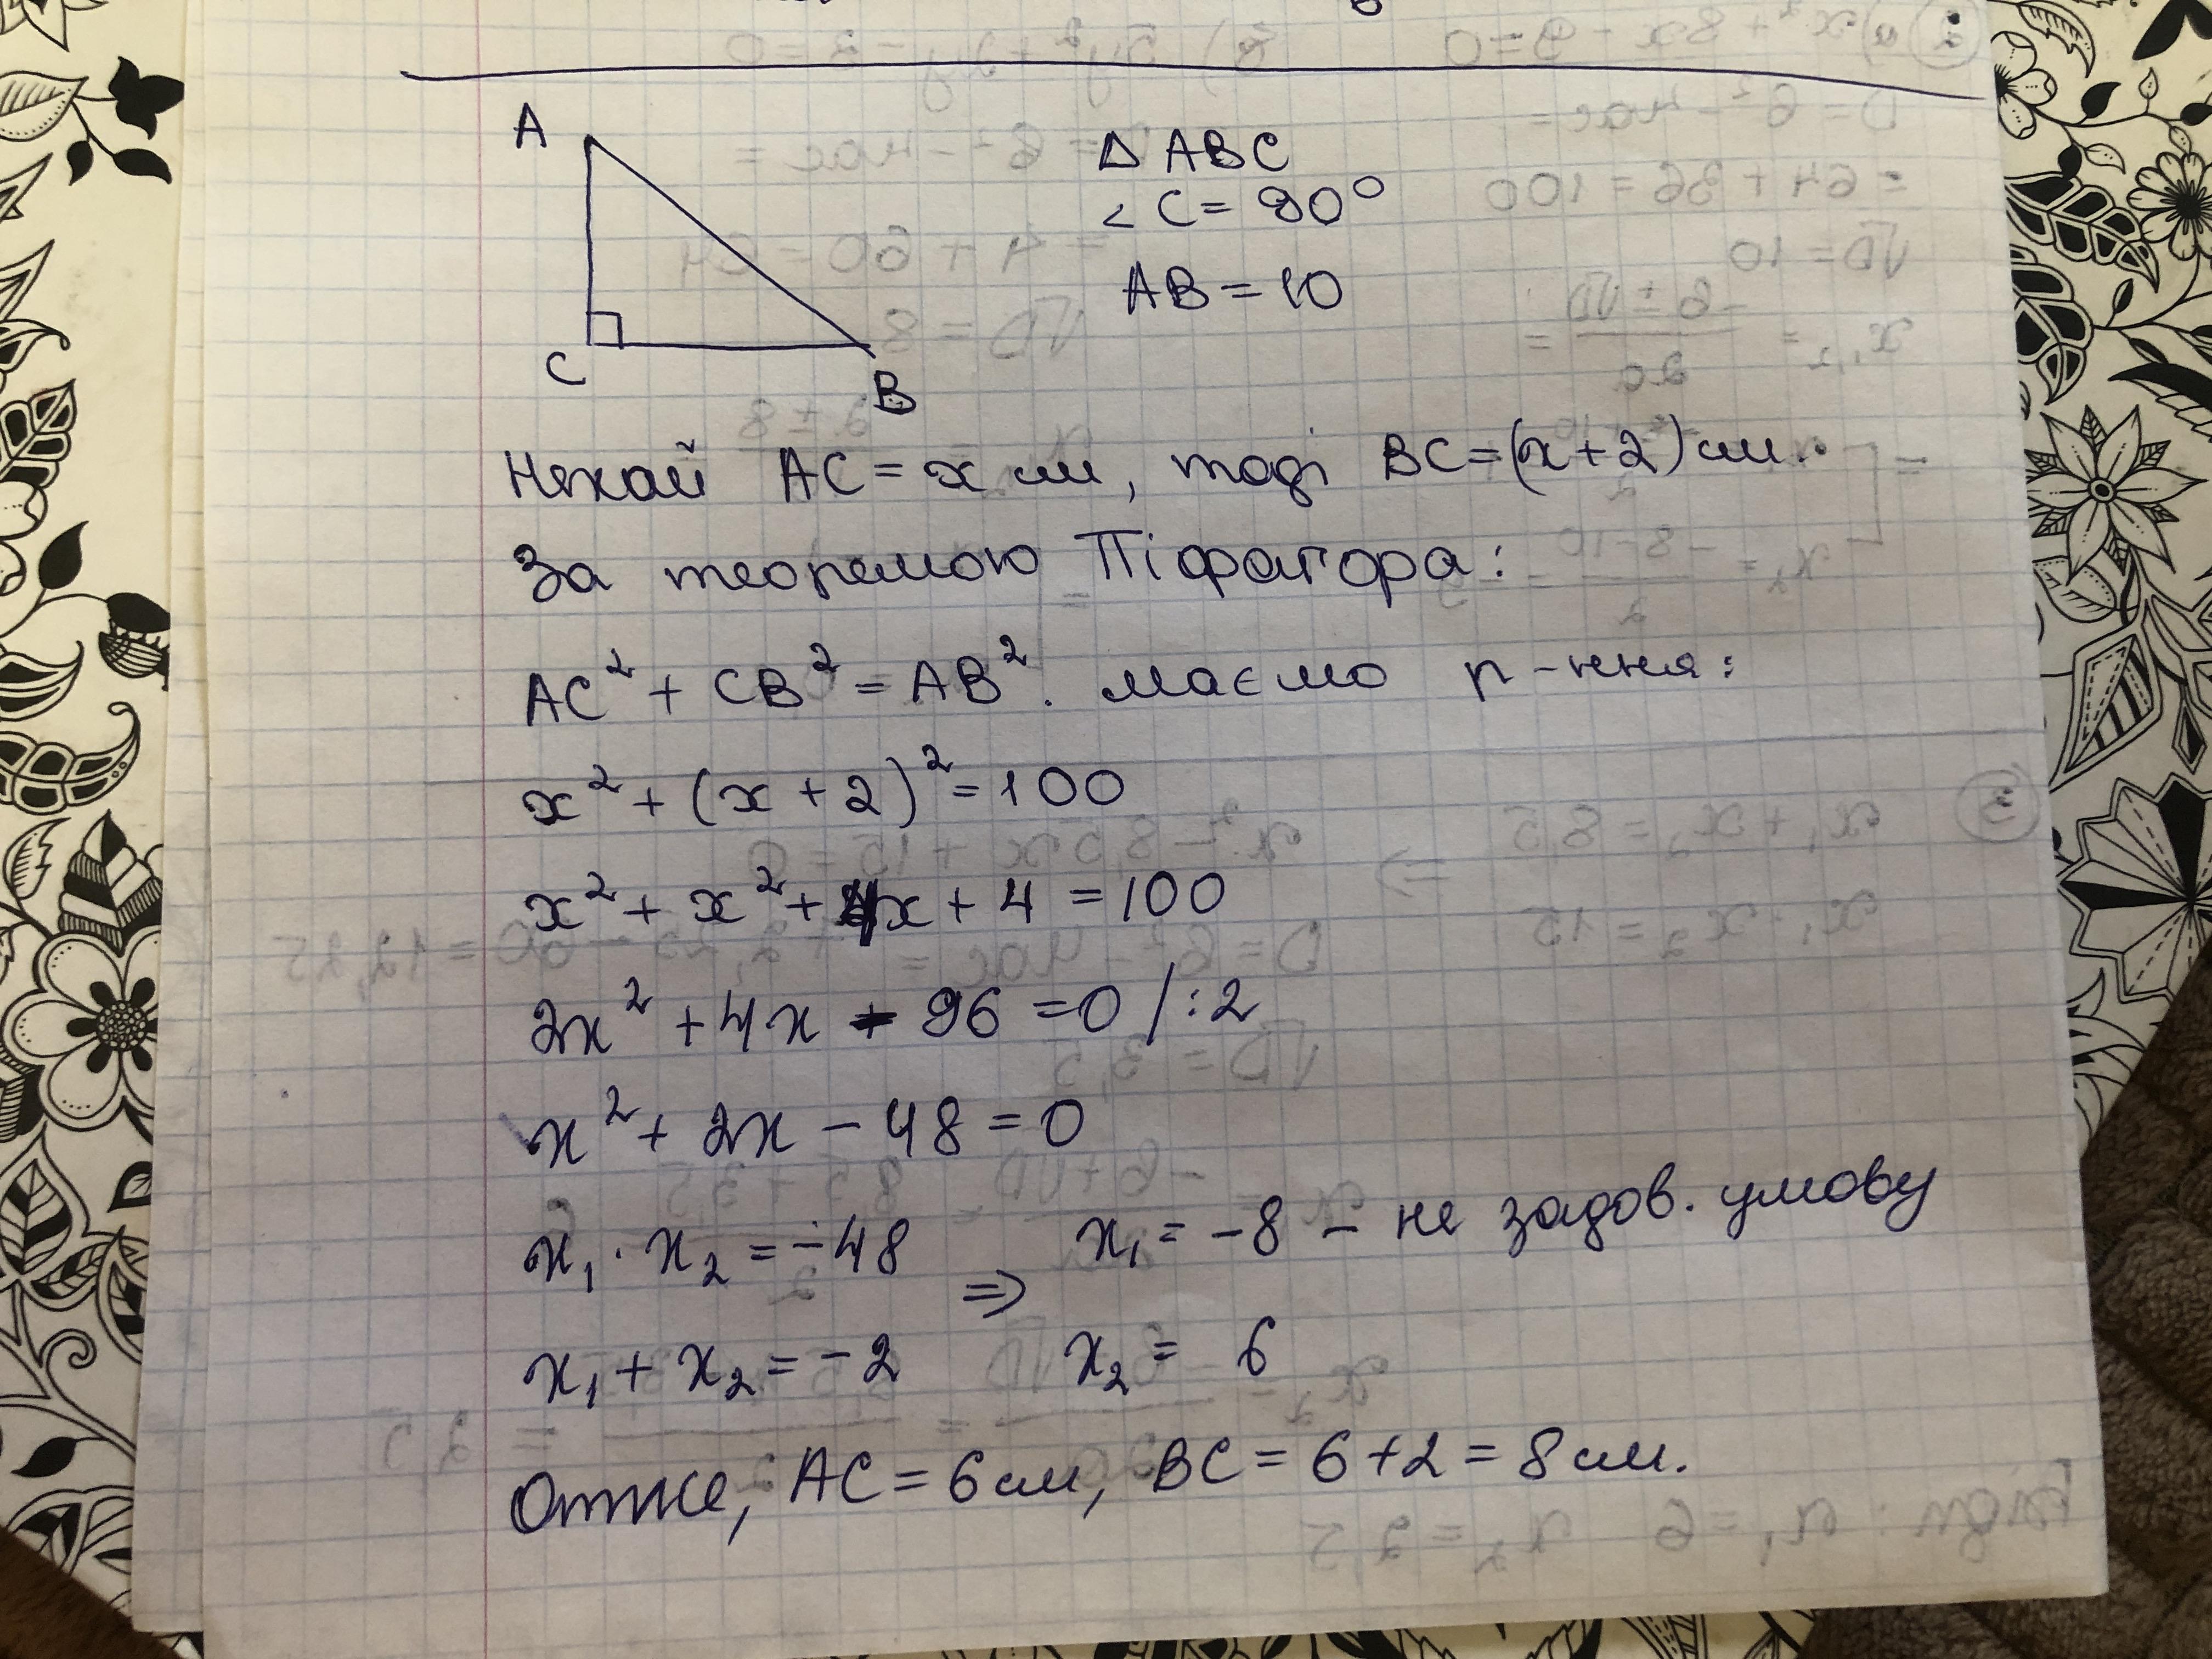 A
C
B
Δ ABC
< C = 90°
AB = 10
Нехай AC = x см, тоді BC = (x + 2) см.
За теоремою Піфагора:
AC² + CB² = AB². маємо р-ння:
x² + (x + 2)² = 100
x² + x² + 4x + 4 = 100
2x² + 4x - 96 = 0 /:2
x² + 2x - 48 = 0
x₁ · x₂ = -48
x₁ + x₂ = -2
⇒
x₁ = -8 - не задов. умову
x₂ = 6
Отже, AC = 6 см, BC = 6 + 2 = 8 см.